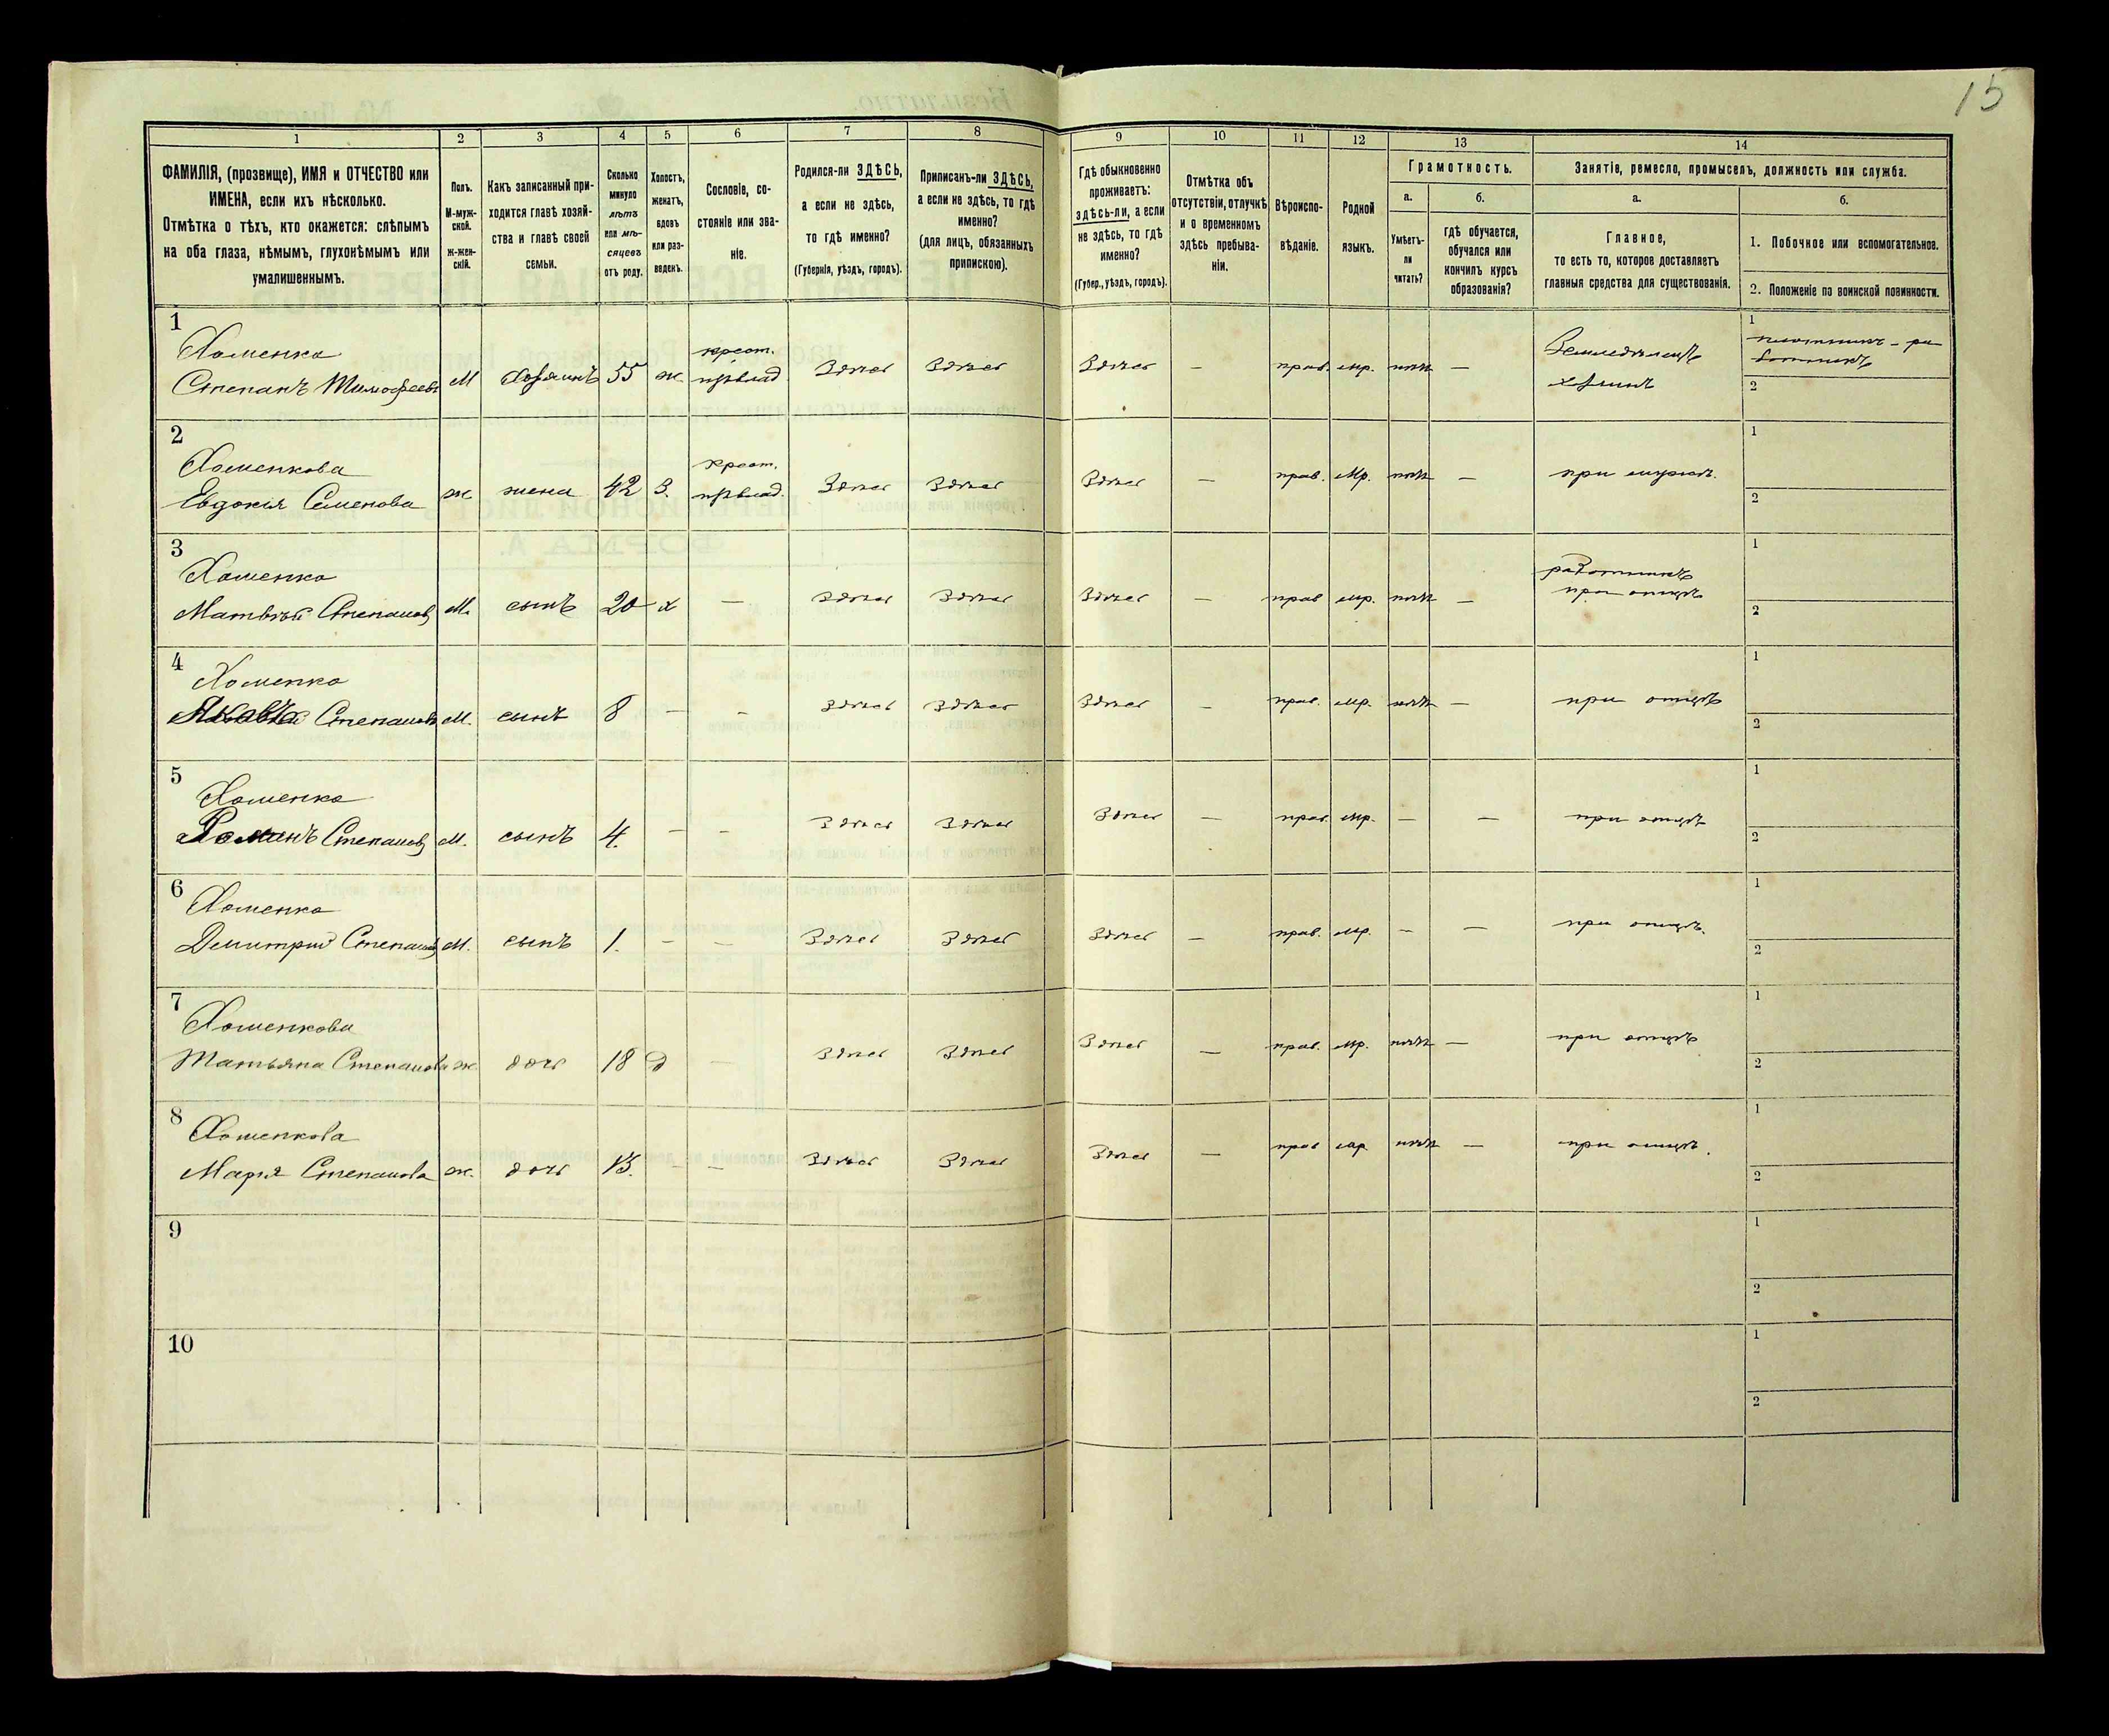 15
1 2 3 4 5 6 7 8 9 10 11 12 13 14
ФАМИЛІЯ, (прозвище), ИМЯ и ОТЧЕСТВО или
ИМЕНА, если ихъ нѣсколько.
Отмѣтка о тѣхъ, кто окажется: слѣпымъ
на оба глаза, нѣмымъ, глухонѣмымъ или
умалишеннымъ.
Полъ.
М-муж-
ской.
ж-жен-
скій.
Какъ записанный при-
ходится главѣ хозяй-
ства и главѣ своей
семьи.
Сколько
минуло
лѣтъ
или мѣ-
сяцевъ
отъ роду.
Холостъ,
женатъ,
вдовъ
или раз-
веденъ.
Сословіе, со-
стояніе или зва-
ніе.
Родился-ли ЗДѢСЬ,
а если не здѣсь,
то гдѣ именно?
(Губернія, уѣздъ, городъ).
Приписанъ-ли ЗДѢСЬ,
а если не здѣсь, то гдѣ
именно?
(для лицъ, обязанныхъ
припискою).
Гдѣ обыкновенно
проживаетъ:
здѣсь-ли, а если
не здѣсь, то гдѣ
именно?
(Губер., уѣздъ, городъ).
Отмѣтка объ
отсутствіи, отлучкѣ
и о временномъ
здѣсь пребыва-
ніи.
Вѣроиспо-
вѣданіе.
Родной
языкъ.
Грамотность.
а.
Умѣетъ-
ли
читать?
б.
гдѣ обучается,
обучался или
кончилъ курсъ
образованія?
Занятіе, ремесло, промыселъ, должность или служба.
а.
Главное,
то есть то, которое доставляетъ
главныя средства для существованія.
б.
1. Побочное или вспомогательное.
2. Положеніе по воинской повинности.
1
Хоменко крест. Земледѣлецъ 1 плотникъ - ра
Степанъ Тимофеевъ М хозяинъ 55 ж. Здѣсь Здѣсь Здѣсь — прав. мр. нѣтъ — хозяинъ ботникъ
2
2
Хоменкова крест. 1
Евдокія Семенова ж. жена 42 З. Здѣсь Здѣсь Здѣсь — прав. мр. нѣтъ — при мужѣ.
2
3
Хоменко работникъ 1
Матвѣй Степановъ М. сынъ 20 х — Здѣсь Здѣсь Здѣсь — прав мр. нѣтъ — при отцѣ
2
4
Хоменко 1
Степановъ М. сынъ 8 — — Здѣсь Здѣсь Здѣсь — прав. мр. нѣтъ — при отцѣ
2
5
Хоменко 1
Романъ Степановъ М. сынъ 4. — — Здѣсь Здѣсь Здѣсь — прав. мр. — — при отцѣ
2
6
Хоменко 1
Димитрій Степановъ М. сынъ 1. — — Здѣсь Здѣсь Здѣсь — прав. мр. — — при отцѣ.
2
7
Хоменкова 1
Татьяна Степанова ж. дочь 18 д — Здѣсь Здѣсь Здѣсь — прав. мр. нѣтъ — при отцѣ
2
8
Хоменкова 1
Марія Степанова ж. дочь 13. — — Здѣсь Здѣсь Здѣсь — прав мр. нѣтъ — при отцѣ.
2
9
1
2
10
1
2